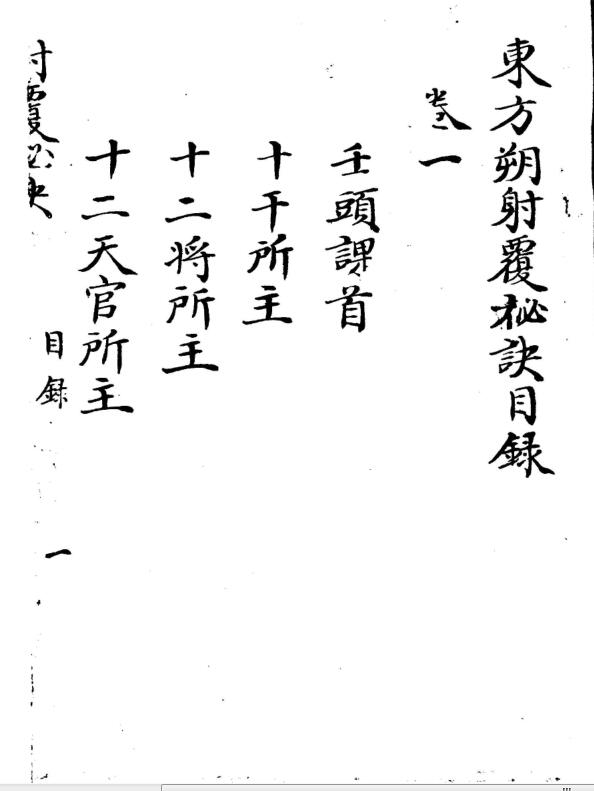 東方朔射覆秘訣目録
卷一
壬頭課首
十干所主
十二将所主
十二天官所主
射覆秘訣
目録
一